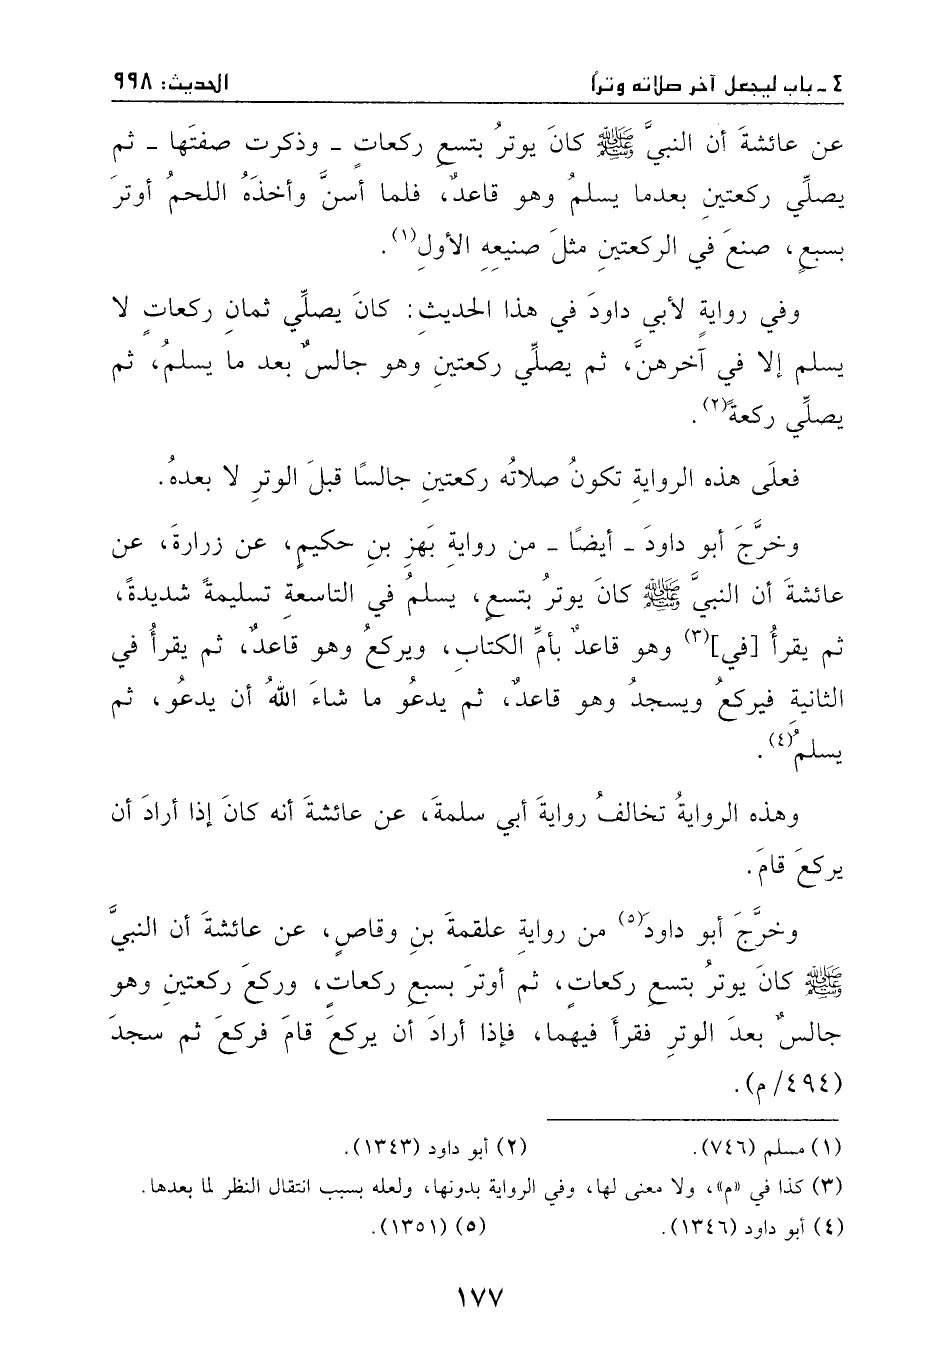 ٤ - باب ليجعل آخر صلاته وترًا
الحديث: ٩٩٨
عن عائشةَ أن النبيَّ ﷺ كانَ يوترُ بتسعِ ركعاتٍ - وذكرت صفتَها - ثم
يصلِّي ركعتينِ بعدما يسلمُ وهو قاعدٌ، فلما أسنَّ وأخذَهُ اللحمُ أوترَ
بسبعٍ، صنعَ في الركعتينِ مثلَ صنيعِهِ الأولِ(١).
وفي روايةٍ لأبي داودَ في هذا الحديثِ: كانَ يصلِّي ثمانِ ركعاتٍ لا
يسلم إلا في آخرهنَّ، ثم يصلِّي ركعتينِ وهو جالسٌ بعد ما يسلمُ، ثم
يصلِّي ركعةً(٢).
فعلَى هذه الروايةِ تكونُ صلاتُه ركعتينِ جالسًا قبلَ الوترِ لا بعدهُ.
وخرَّجَ أبو داودَ - أيضًا - من روايةِ بَهزِ بنِ حكيمٍ، عن زرارةَ، عن
عائشةَ أن النبيَّ ﷺ كانَ يوترُ بتسعٍ، يسلمُ في التاسعةِ تسليمةً شديدةً،
ثم يقرأُ [في](٣) وهو قاعدٌ بأمِّ الكتابِ، ويركعُ وهو قاعدٌ، ثم يقرأُ في
الثانيةِ فيركعُ ويسجدُ وهو قاعدٌ، ثم يدعُو ما شاءَ اللهُ أن يدعُو، ثم
يسلمُ(٤).
وهذه الروايةُ تخالفُ روايةَ أبي سلمةَ، عن عائشةَ أنه كانَ إذا أرادَ أن
يركعَ قامَ.
وخرَّجَ أبو داودَ(٥) من روايةِ علقمةَ بنِ وقاصٍ، عن عائشةَ أن النبيَّ
ﷺ كانَ يوترُ بتسعِ ركعاتٍ، ثم أوترَ بسبعِ ركعاتٍ، وركعَ ركعتينِ وهو
جالسٌ بعدَ الوترِ فقرأَ فيهما، فإذا أرادَ أن يركعَ قامَ فركعَ ثم سجدَ
(٤٩٤/م).
(١) مسلم (٧٤٦). (٢) أبو داود (١٣٤٣).
(٣) كذا في «م»، ولا معنى لها، وفي الرواية بدونها، ولعله بسبب انتقال النظر لما بعدها.
(٤) أبو داود (١٣٤٦). (٥) (١٣٥١).
١٧٧